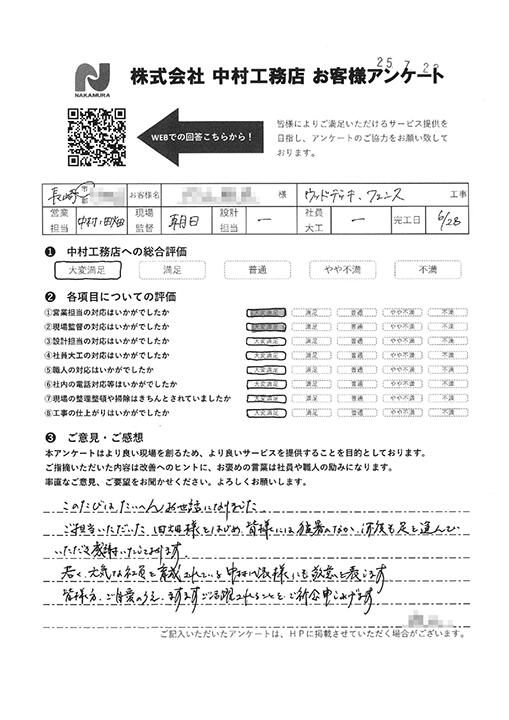 25 7 22
NAKAMURA
株式会社 中村工務店 お客様アンケート
WEBでの回答こちらから！
皆様によりご満足いただけるサービス提供を
目指し、アンケートのご協力をお願い致して
おります。
長崎 市 郡 お客様名 様 ウッドデッキ・フェンス 工事
営業担当 中村・田畑 現場監督 朝日 設計担当 ー 社員大工 ー 完工日 6/28
❶ 中村工務店への総合評価
大変満足 満足 普通 やや不満 不満
❷ 各項目についての評価
①営業担当の対応はいかがでしたか 大変満足 満足 普通 やや不満 不満
②現場監督の対応はいかがでしたか 大変満足 満足 普通 やや不満 不満
③設計担当の対応はいかがでしたか 大変満足 満足 普通 やや不満 不満
④社員大工の対応はいかがでしたか 大変満足 満足 普通 やや不満 不満
⑤職人の対応はいかがでしたか 大変満足 満足 普通 やや不満 不満
⑥社内の電話対応等はいかがでしたか 大変満足 満足 普通 やや不満 不満
⑦現場の整理整頓や掃除はきちんとされていましたか 大変満足 満足 普通 やや不満 不満
⑧工事の仕上がりはいかがでしたか 大変満足 満足 普通 やや不満 不満
❸ ご意見・ご感想
本アンケートはより良い現場を創るため、より良いサービスを提供することを目的としております。
ご指摘いただいた内容は改善へのヒントに、お褒めの言葉は社員や職人の励みになります。
率直なご意見、ご要望をお聞かせください。よろしくお願いします。
このたびはたいへんお世話になりました。
ご担当いただいた田畑様をはじめ、皆様には猛暑のなか、何度も足を運んで
いただき感謝いたしております。
若く、元気な社員を育成されている中村 様にも敬意を表します
皆様方、ご自愛のうえ、ますますご活躍されることをご祈念申しあげます。
ご記入いただいたアンケートは、HPに掲載させていただく場合がございます。